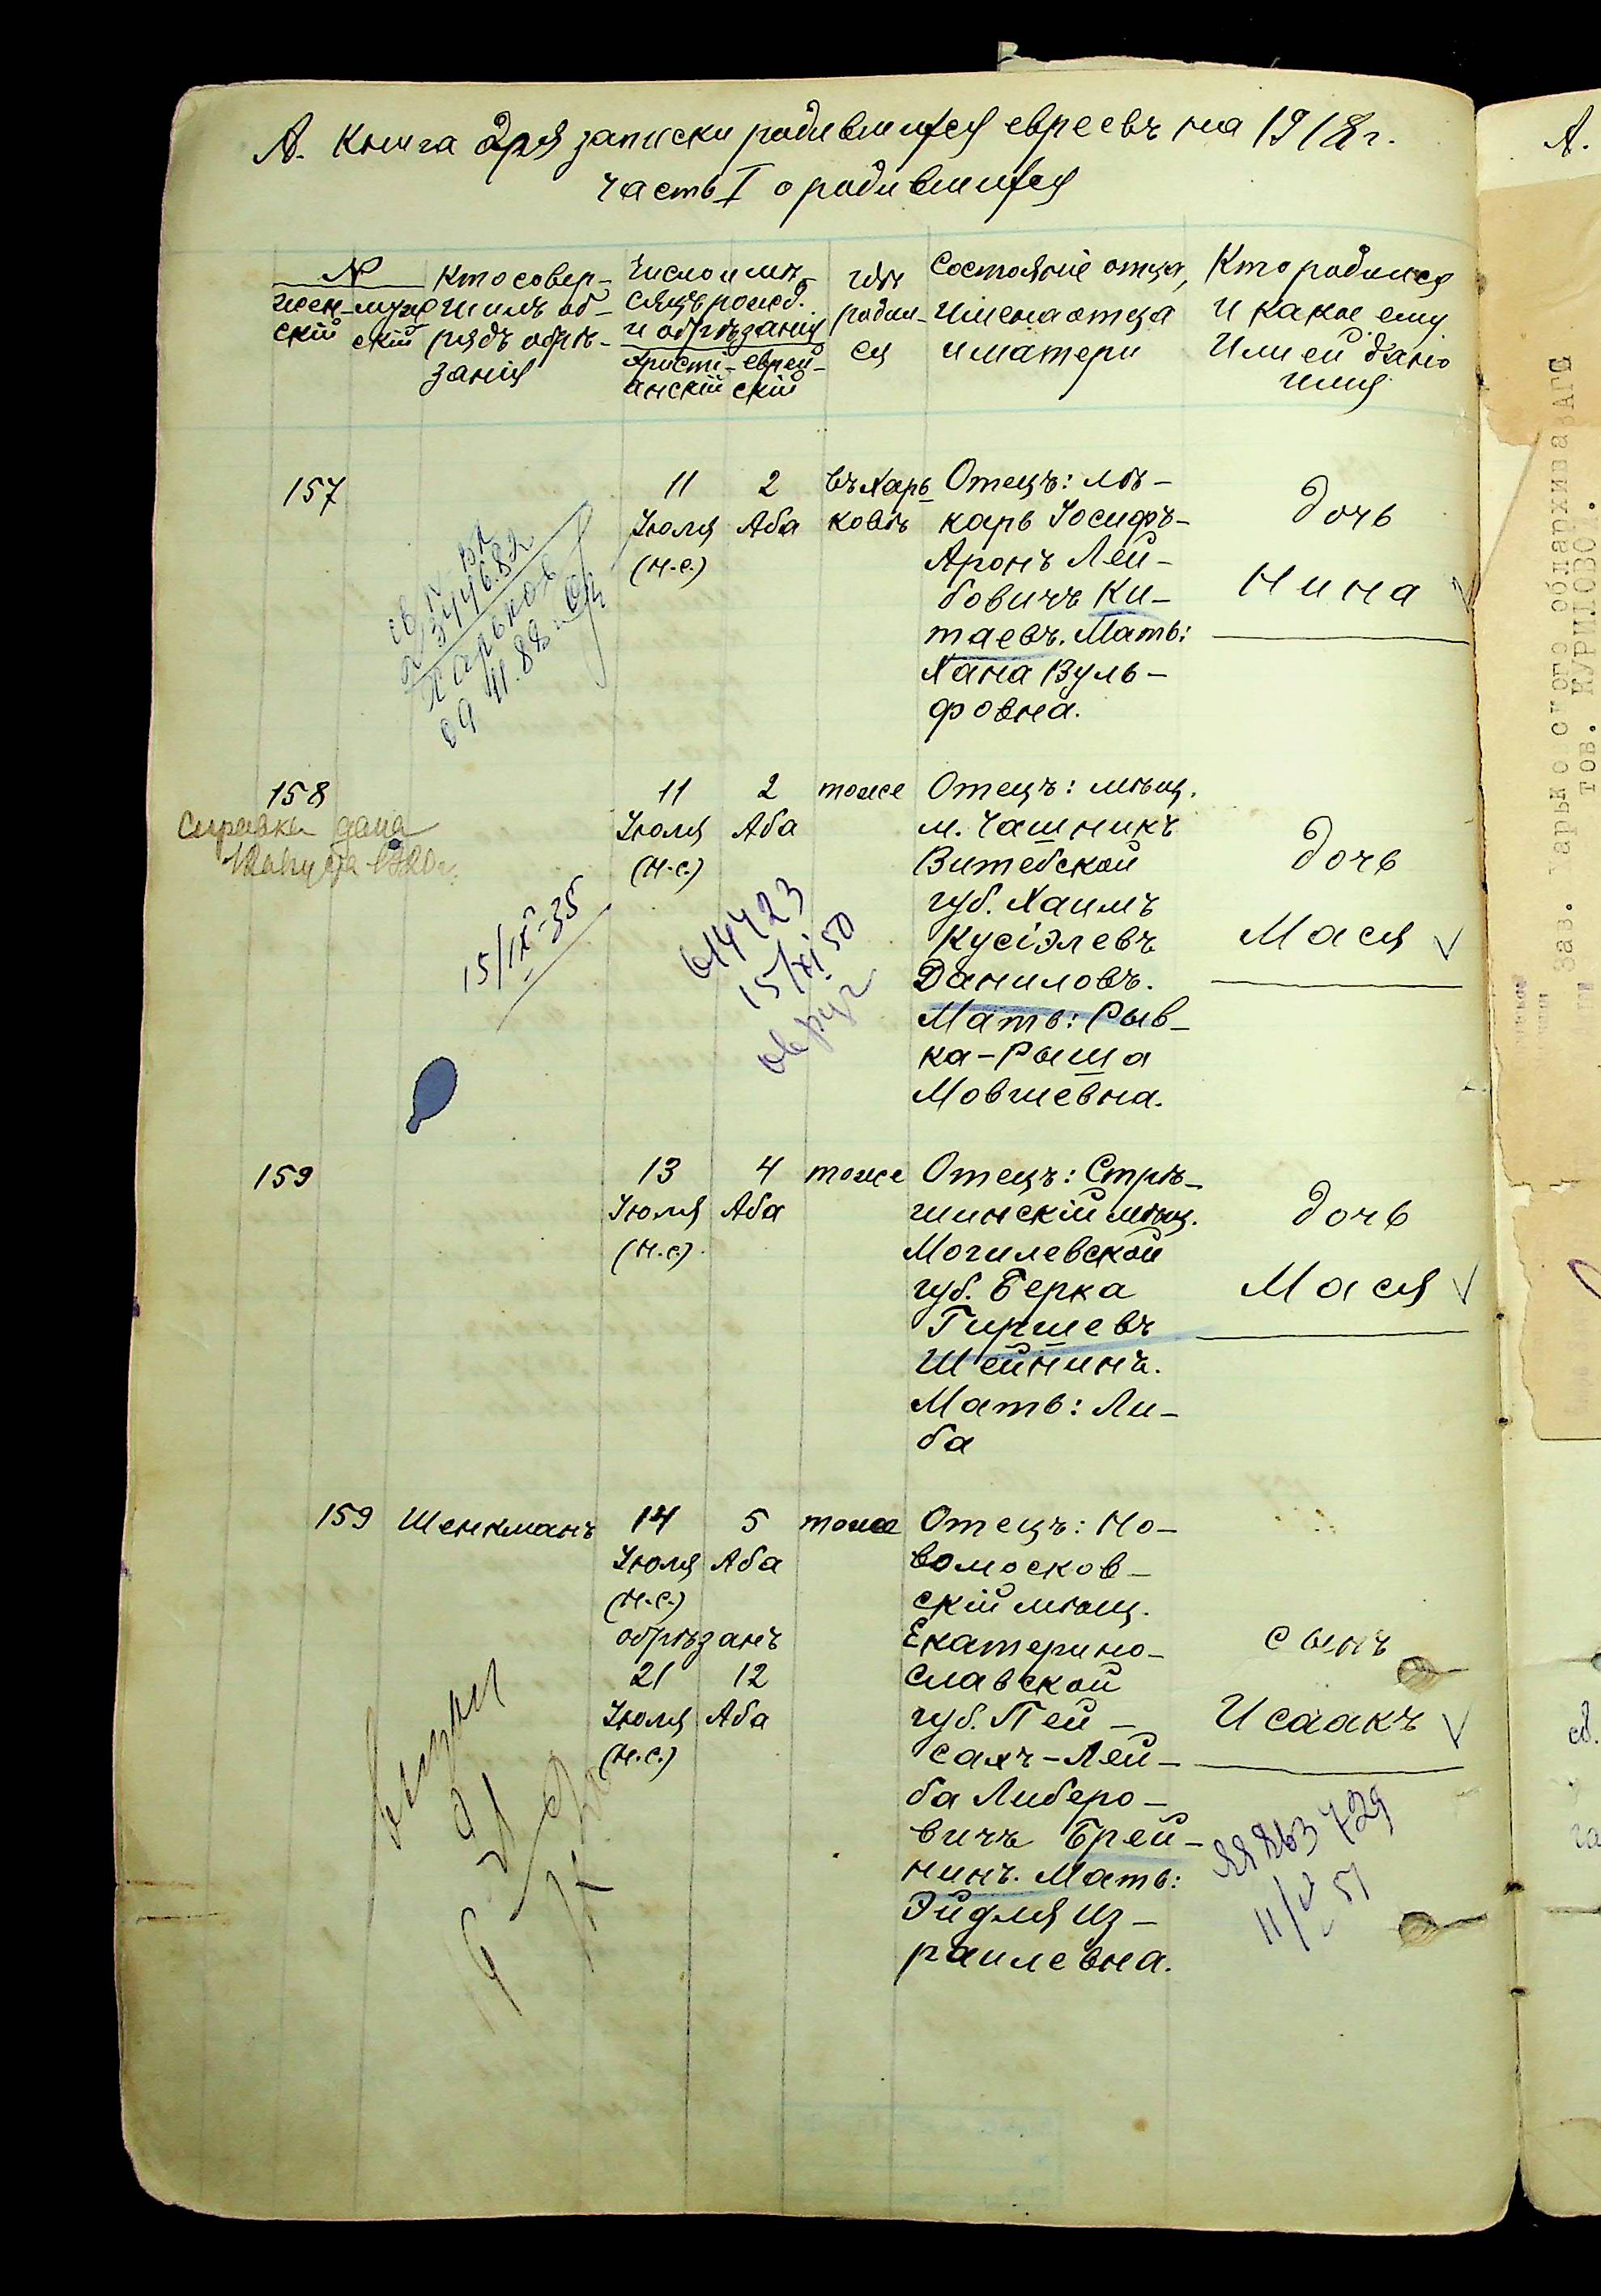 А. Книга для записки родившихся евреевъ на 1918 г.
часть I о родившихся
№
жен-
скій
муж-
скій
Кто совер-
шилъ об-
рядъ обрѣ-
занія
Число и мѣ-
сяцъ рожд.
и обрѣзанія
Христі-
анскій
еврей-
скій
гдѣ
родил-
ся
Состояніе отца,
имена отца
и матери
Кто родился
и какое ему
или ей дано
имя
157
11
Іюля
(н.с.)
2
Аба
въ Харь
ковѣ
Отецъ: лѣ-
карь Іосифъ-
Аронъ Лей-
бовичъ Ки-
таевъ. Мать:
Хана Вуль-
фовна.
дочь
Нина
158
Справка дана
11
Іюля
(н.с.)
2
Аба
тоже
Отецъ: мѣщ.
м. Чашникъ
Витебской
губ. Хаимъ
Кусіэлевъ
Даниловъ.
Мать: Рыв-
ка-Рыша
Мовшевна.
дочь
Мася
15/IX-35
15/XI 50
159
13
Іюля
(н.с.)
4
Аба
тоже
Отецъ: Стрѣ-
шинскій мѣщ.
Могилевской
губ. Берка
Гиршевъ
Шейнинъ.
Мать: Ли-
ба
дочь
Мася
159
Шенкманъ
14
Іюля
(н.с.)
5
Аба
обрѣзанъ
21
Іюля
(н.с.)
12
Аба
тоже
Отецъ: Но-
вомосков-
скій мѣщ.
Екатерино-
славской
губ. Пей-
сахъ-Лей-
ба Либеро-
вичъ Брей-
нинъ. Мать:
Эйдля Из-
раилевна.
сынъ
Исаакъ
11/V 51
Зав. Харьковского облархива ЗАГС
тов. КУРИЛОВОЙ.
А.